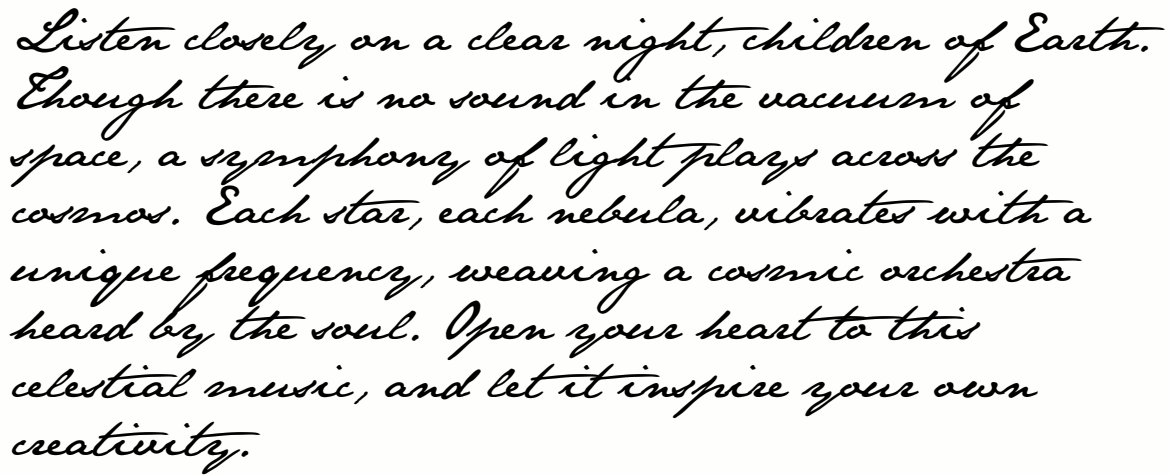 Listen closely on a clear night, children of Earth.
Though there is no sound in the vacuum of
space, a symphony of light plays across the
cosmos. Each star, each nebula, vibrates with a
unique frequency, weaving a cosmic orchestra
heard by the soul. Open your heart to this
celestial music, and let it inspire your own
creativity.